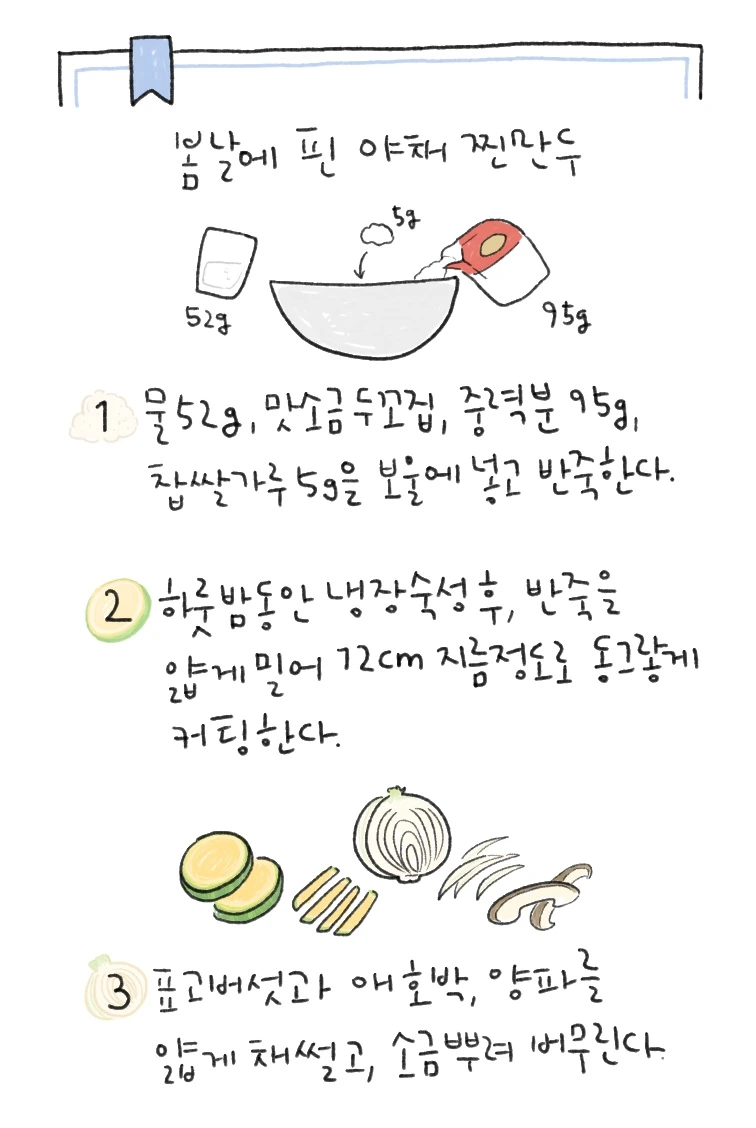 봄날에 핀 야채 찐만두
5g
52g
95g
1 물52g, 맛소금두꼬집, 중력분 95g,
찹쌀가루 5g을 보울에 넣고 반죽한다.
2 하룻밤동안 냉장숙성 후, 반죽을
얇게 밀어 12cm 지름정도로 동그랗게
커팅한다.
3 표고버섯과 애호박, 양파를
얇게 채썰고, 소금뿌려 버무린다.